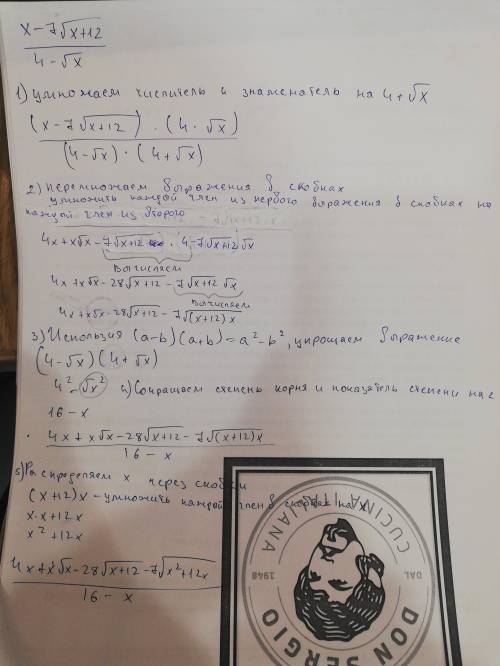 x - 7√x+12
4 - √x
1) умножаем числитель и знаменатель на 4+√x
(x - 7√x+12) · (4 · √x)
(4-√x) · (4+√x)
2) перемножаем выражения в скобках
умножить каждой член из первого выражения в скобках на
каждой член из второго
4x + x√x - 7√x+12 · 4 - 7√x+12 √x
вычисляем
4x + x√x - 28√x+12 - 7√x+12 √x
вычисляем
4x + x√x - 28√x+12 - 7√(x+12)x
3) Используя (a-b)(a+b) = a² - b², упрощаем выражение
(4-√x)(4+√x)
4² - √x² 4) Сокращаем степень корня и показатель степени на 2
16 - x
4x + x√x - 28√x+12 - 7√(x+12)x
16 - x
5) Распределяем x через скобки
(x+12)x - умножить каждой член в скобках на x
x·x + 12x
x² + 12x
4x + x√x - 28√x+12 - 7√x²+12x
16 - x
CUCINA ITALIANA
DAL 1948
DON SERGIO